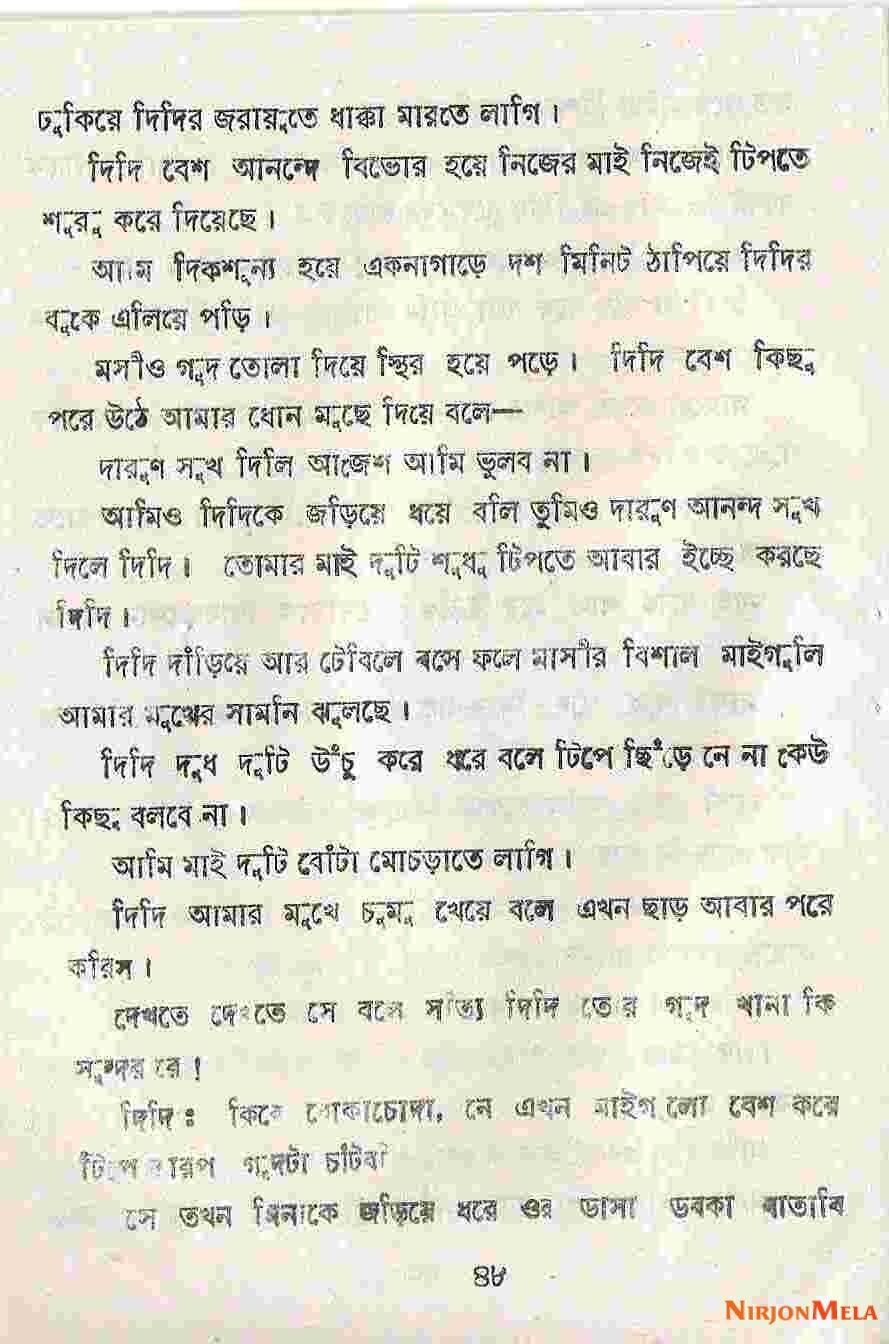 ঢুকিয়ে দিদির জরায়ুতে ধাক্কা মারতে লাগি ।
দিদি বেশ আনন্দে বিভোর হয়ে নিজের মাই নিজেই টিপতে
শুরু করে দিয়েছে ।
আমি দিকশূন্য হয়ে একনাগাড়ে দশ মিনিট ঠাপিয়ে দিদির
বুকে এলিয়ে পড়ি ।
মসীও গুদ তোলা দিয়ে স্থির হয়ে পড়ে । দিদি বেশ কিছু
পরে উঠে আমার ধোন মুছে দিয়ে বলে—
দারুণ সুখ দিলি আজেশ আমি ভুলব না ।
আমিও দিদিকে জড়িয়ে ধয়ে বলি তুমিও দারুণ আনন্দ সুখ
দিলে দিদি । তোমার মাই দুটি শুধু টিপতে আবার ইচ্ছে করছে
দিদি ।
দিদি দাঁড়িয়ে আর টেবিলে বসে ফলে মাসীর বিশাল মাইগুলি
আমার মুখের সামনি ঝুলছে ।
দিদি দুধ দুটি উঁচু করে ধরে বলে টিপে ছিঁড়ে নে না কেউ
কিছু বলবে না ।
আমি মাই দুটি বোঁটা মোচড়াতে লাগি ।
দিদি আমার মুখে চুমু খেয়ে বলে এখন ছাড় আবার পরে
করিস ।
দেখতে দেখতে সে বলে সত্যি দিদি তোর গুদ খানা কি
সুন্দর রে !
দিদি : কিরে বোকাচোদা, নে এখন মাইগুলো বেশ করে
টিপে গুদটা চাটবি
সে তখন রিনাকে জড়িয়ে ধরে ওর ডাসা ডবকা বাতাবি
৪৮
NIRJONMELA